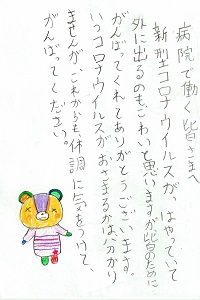 病院で働く皆さまへ
新型コロナウイルスが、はやっていて
外に出るのもこわいと思いますが皆のために
がんばってくれてありがとうございます。
いつコロナウイルスがおさまるかは分かり
ませんが、これからも体調に気をつけて、
がんばってください。